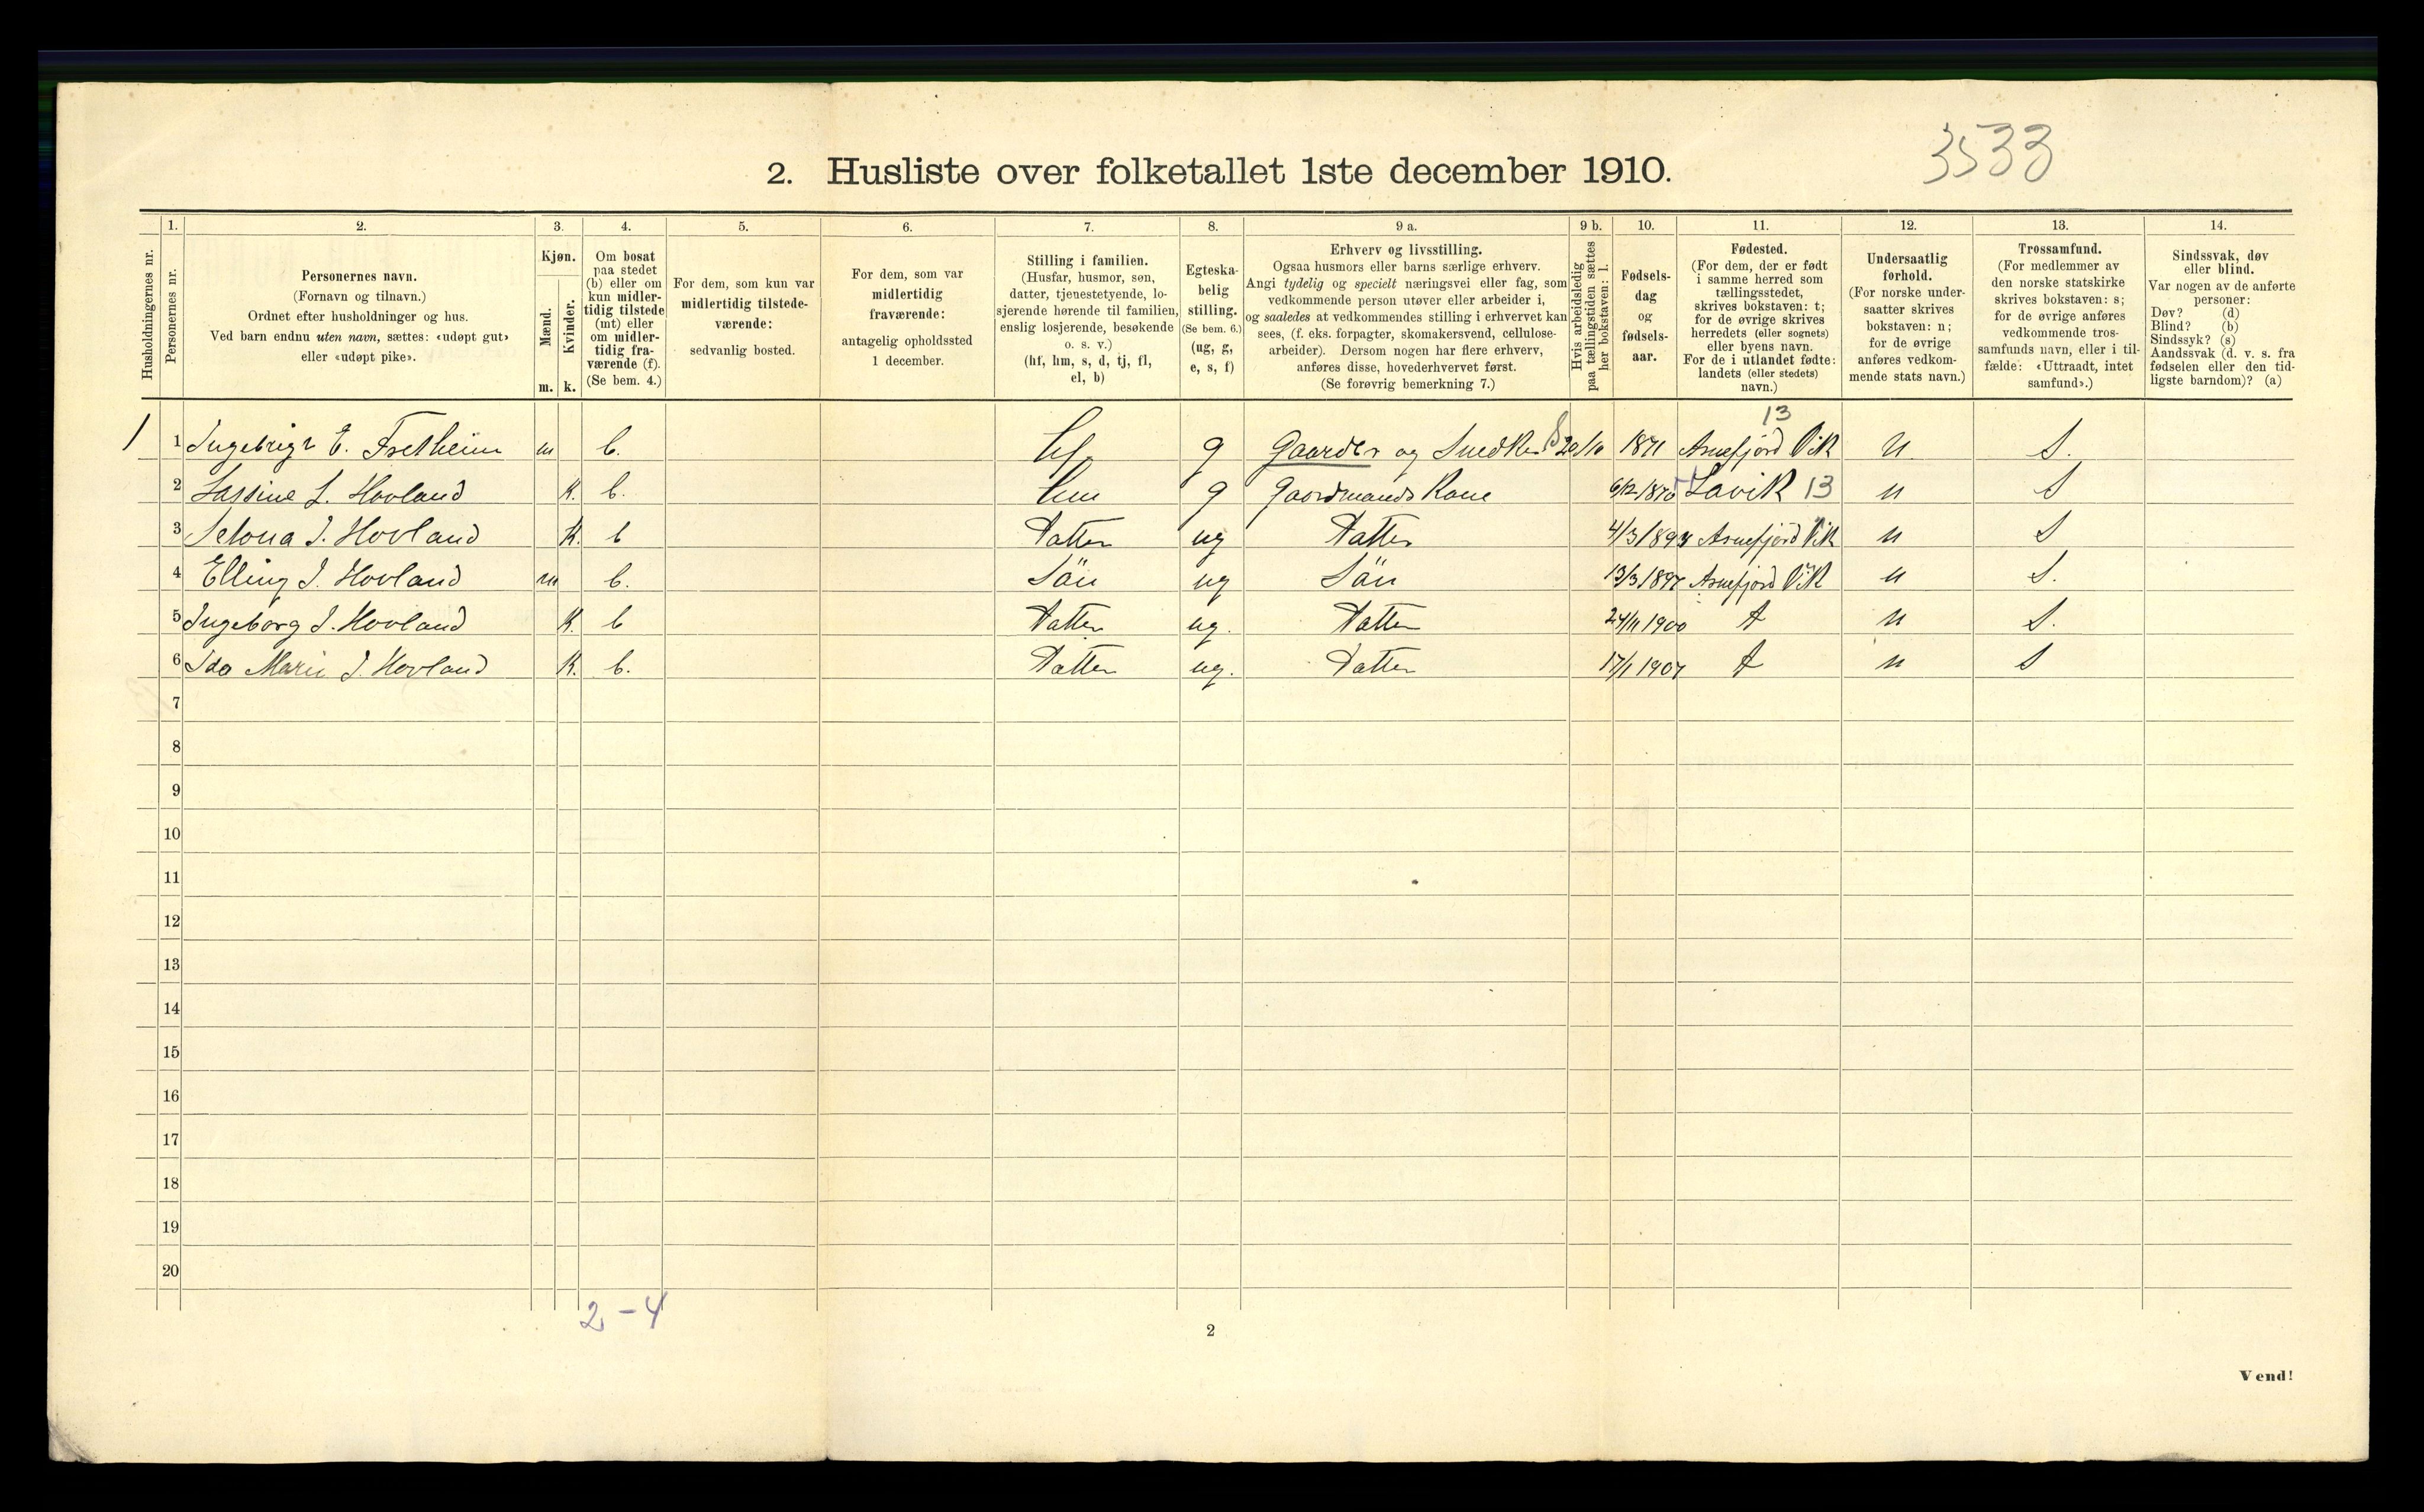 3533
2. Husliste over folketallet 1ste december 1910.
Husholdningernes nr.
1.
Personernes nr.
2.
Personernes navn.
(Fornavn og tilnavn.)
Ordnet efter husholdninger og hus.
Ved barn endnu uten navn, sættes: «udøpt gut»
eller «udøpt pike».
3.
Kjøn.
Mænd.
m.
Kvinder.
k.
4.
Om bosat
paa stedet
(b) eller om
kun midler-
tidig tilstede
(mt) eller
om midler-
tidig fra-
værende (f).
(Se bem. 4.)
5.
For dem, som kun var
midlertidig tilstede-
værende:
sedvanlig bosted.
6.
For dem, som var
midlertidig
fraværende:
antagelig opholdssted
1 december.
7.
Stilling i familien.
(Husfar, husmor, søn,
datter, tjenestetyende, lo-
sjerende hørende til familien,
enslig losjerende, besøkende
o. s. v.)
(hf, hm, s, d, tj, fl,
el, b)
8.
Egteska-
belig
stilling.
(Se bem. 6.)
(ug, g,
e, s, f)
9 a.
Erhverv og livsstilling.
Ogsaa husmors eller barns særlige erhverv.
Angi tydelig og specielt næringsvei eller fag, som
vedkommende person utøver eller arbeider i,
og saaledes at vedkommendes stilling i erhvervet kan
sees, (f. eks. forpagter, skomakersvend, cellulose-
arbeider). Dersom nogen har flere erhverv,
anføres disse, hovederhvervet først.
(Se forøvrig bemerkning 7.)
9 b.
Hvis arbeidsledig
paa tællingstiden sættes
her bokstaven: l.
10.
Fødsels-
dag
og
fødsels-
aar.
11.
Fødested.
(For dem, der er født
i samme herred som
tællingsstedet,
skrives bokstaven: t;
for de øvrige skrives
herredets (eller sognets)
eller byens navn.
For de i utlandet fødte:
landets (eller stedets)
navn.)
12.
Undersaatlig
forhold.
(For norske under-
saatter skrives
bokstaven: n;
for de øvrige
anføres vedkom-
mende stats navn.)
13.
Trossamfund.
(For medlemmer av
den norske statskirke
skrives bokstaven: s;
for de øvrige anføres
vedkommende tros-
samfunds navn, eller i til-
fælde: «Uttraadt, intet
samfund».)
14.
Sindssvak, døv
eller blind.
Var nogen av de anførte
personer:
Døv? (d)
Blind? (b)
Sindssyk? (s)
Aandssvak (d. v. s. fra
fødselen eller den tid-
ligste barndom)? (a)
13
1 1 Ingebrigt E. Fretheim m b. hf. g Gaardbr og Snedker 20/10 1871 Arnefjord Vik n S.
2 K. b. hm g Gaardmands Kone 6/12 1870 Lavik 13 n S
3 J. Hovland K. b Datter ug Datter 4/3 Arnefjord Vik n S
4 Elling J. Hovland m b. Sön ug Sön 13/3 1897 Arnefjord Vik n S.
5 Ingeborg J. Hovland K. b Datter ug. Datter 1900 t n S.
6 Ida Marie J. Hovland K. b. Datter ug. Datter 17/1 1907 t n S
7
8
9
10
11
12
13
14
15
16
17
18
19
20
2 - 4
2
Vend!